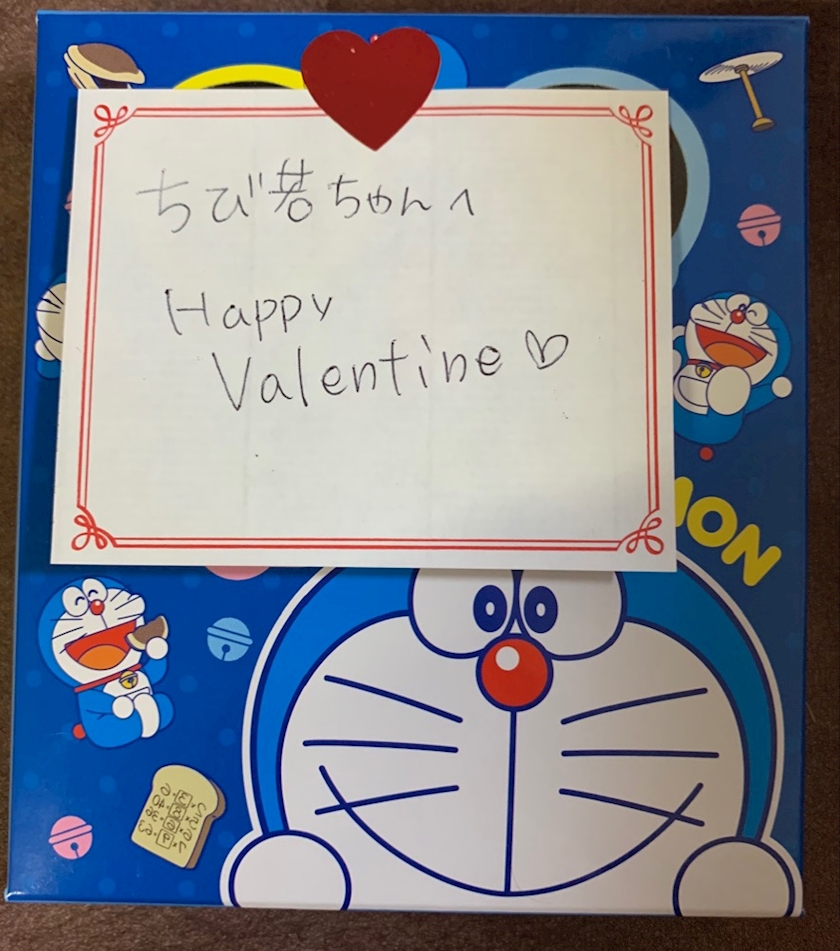 ちび君ちゃんへ
Happy
Valentine♡
MON